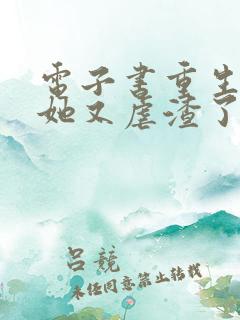 電子書重生
她又虐渣了
呂競
未經同意禁止轉載